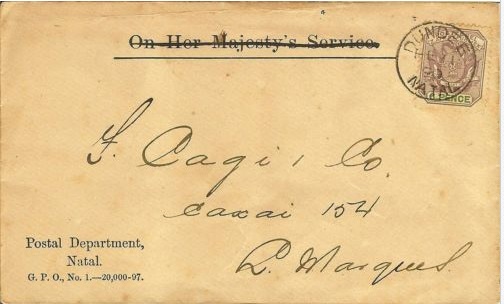 On Her Majesty's Service.
DUNDEE
NATAL
PENCE
F. Cagi & Co.
caxai 154
L. Marques.
Postal Department,
Natal.
G. P. O., No. 1.—20,000-97.